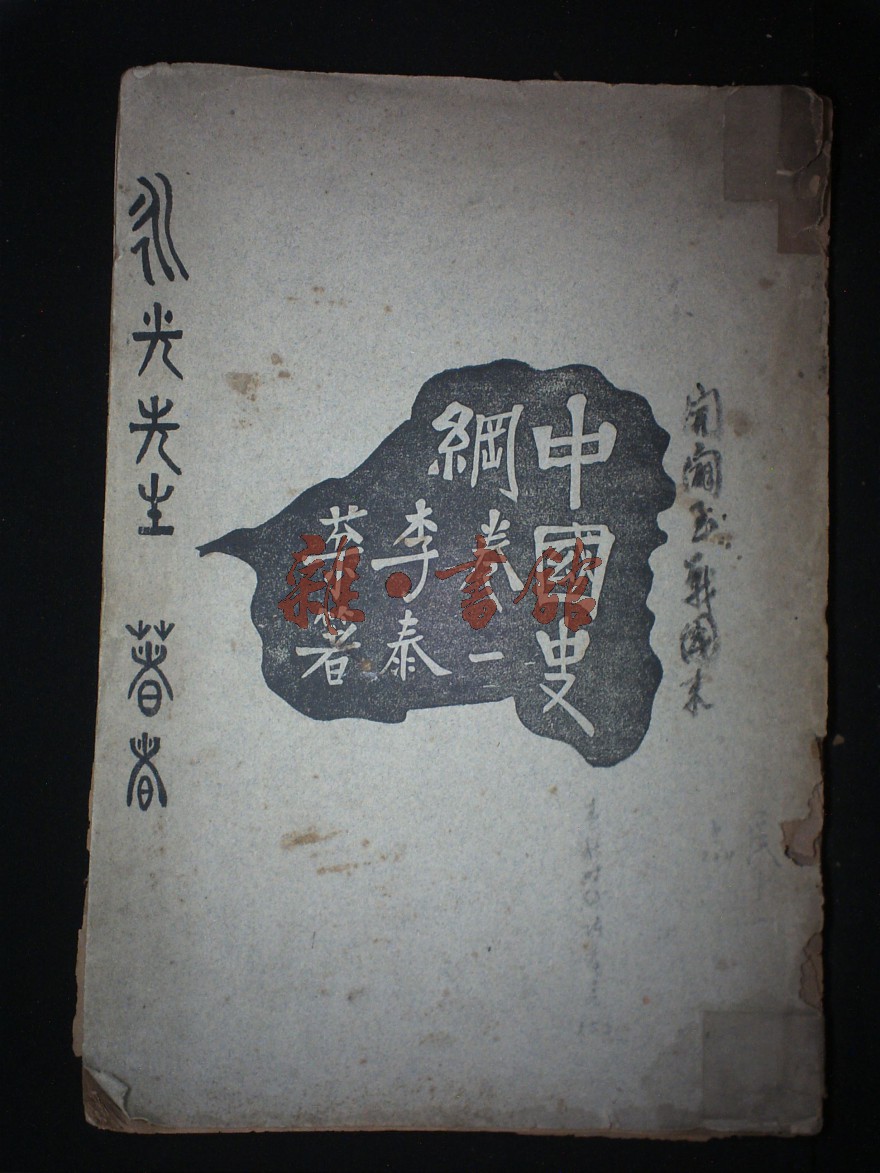 開闢至戰國末
中國史
綱 卷一
李泰
棻著
雜·書館
永光先生